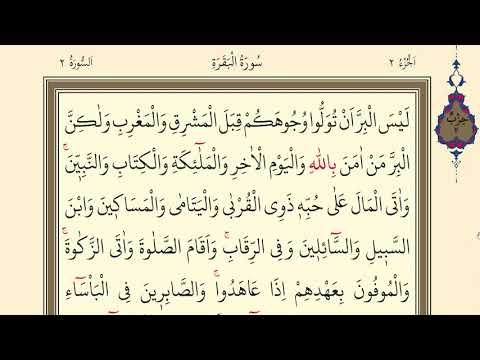 اَلْجُزْءُ ٢
سُورَةُ الْبَقَرَةِ
اَلسُّورَةُ ٢
لَيْسَ الْبِرَّ اَنْ تُوَلُّوا وُجُوهَكُمْ قِبَلَ الْمَشْرِقِ وَالْمَغْرِبِ وَلٰكِنَّ
الْبِرَّ مَنْ اٰمَنَ بِاللّٰهِ وَالْيَوْمِ الْاٰخِرِ وَالْمَلٰٓئِكَةِ وَالْكِتَابِ وَالنَّبِيّٖنَۚ
وَاٰتَى الْمَالَ عَلٰى حُبِّهٖ ذَوِي الْقُرْبٰى وَالْيَتَامٰى وَالْمَسَاكٖينَ وَابْنَ
السَّبٖيلِ وَالسَّٓائِلٖينَ وَفِي الرِّقَابِۚ وَاَقَامَ الصَّلٰوةَ وَاٰتَى الزَّكٰوةَۚ
وَالْمُوفُونَ بِعَهْدِهِمْ اِذَا عَاهَدُواۚ وَالصَّابِرٖينَ فِي الْبَأْسَٓاءِ